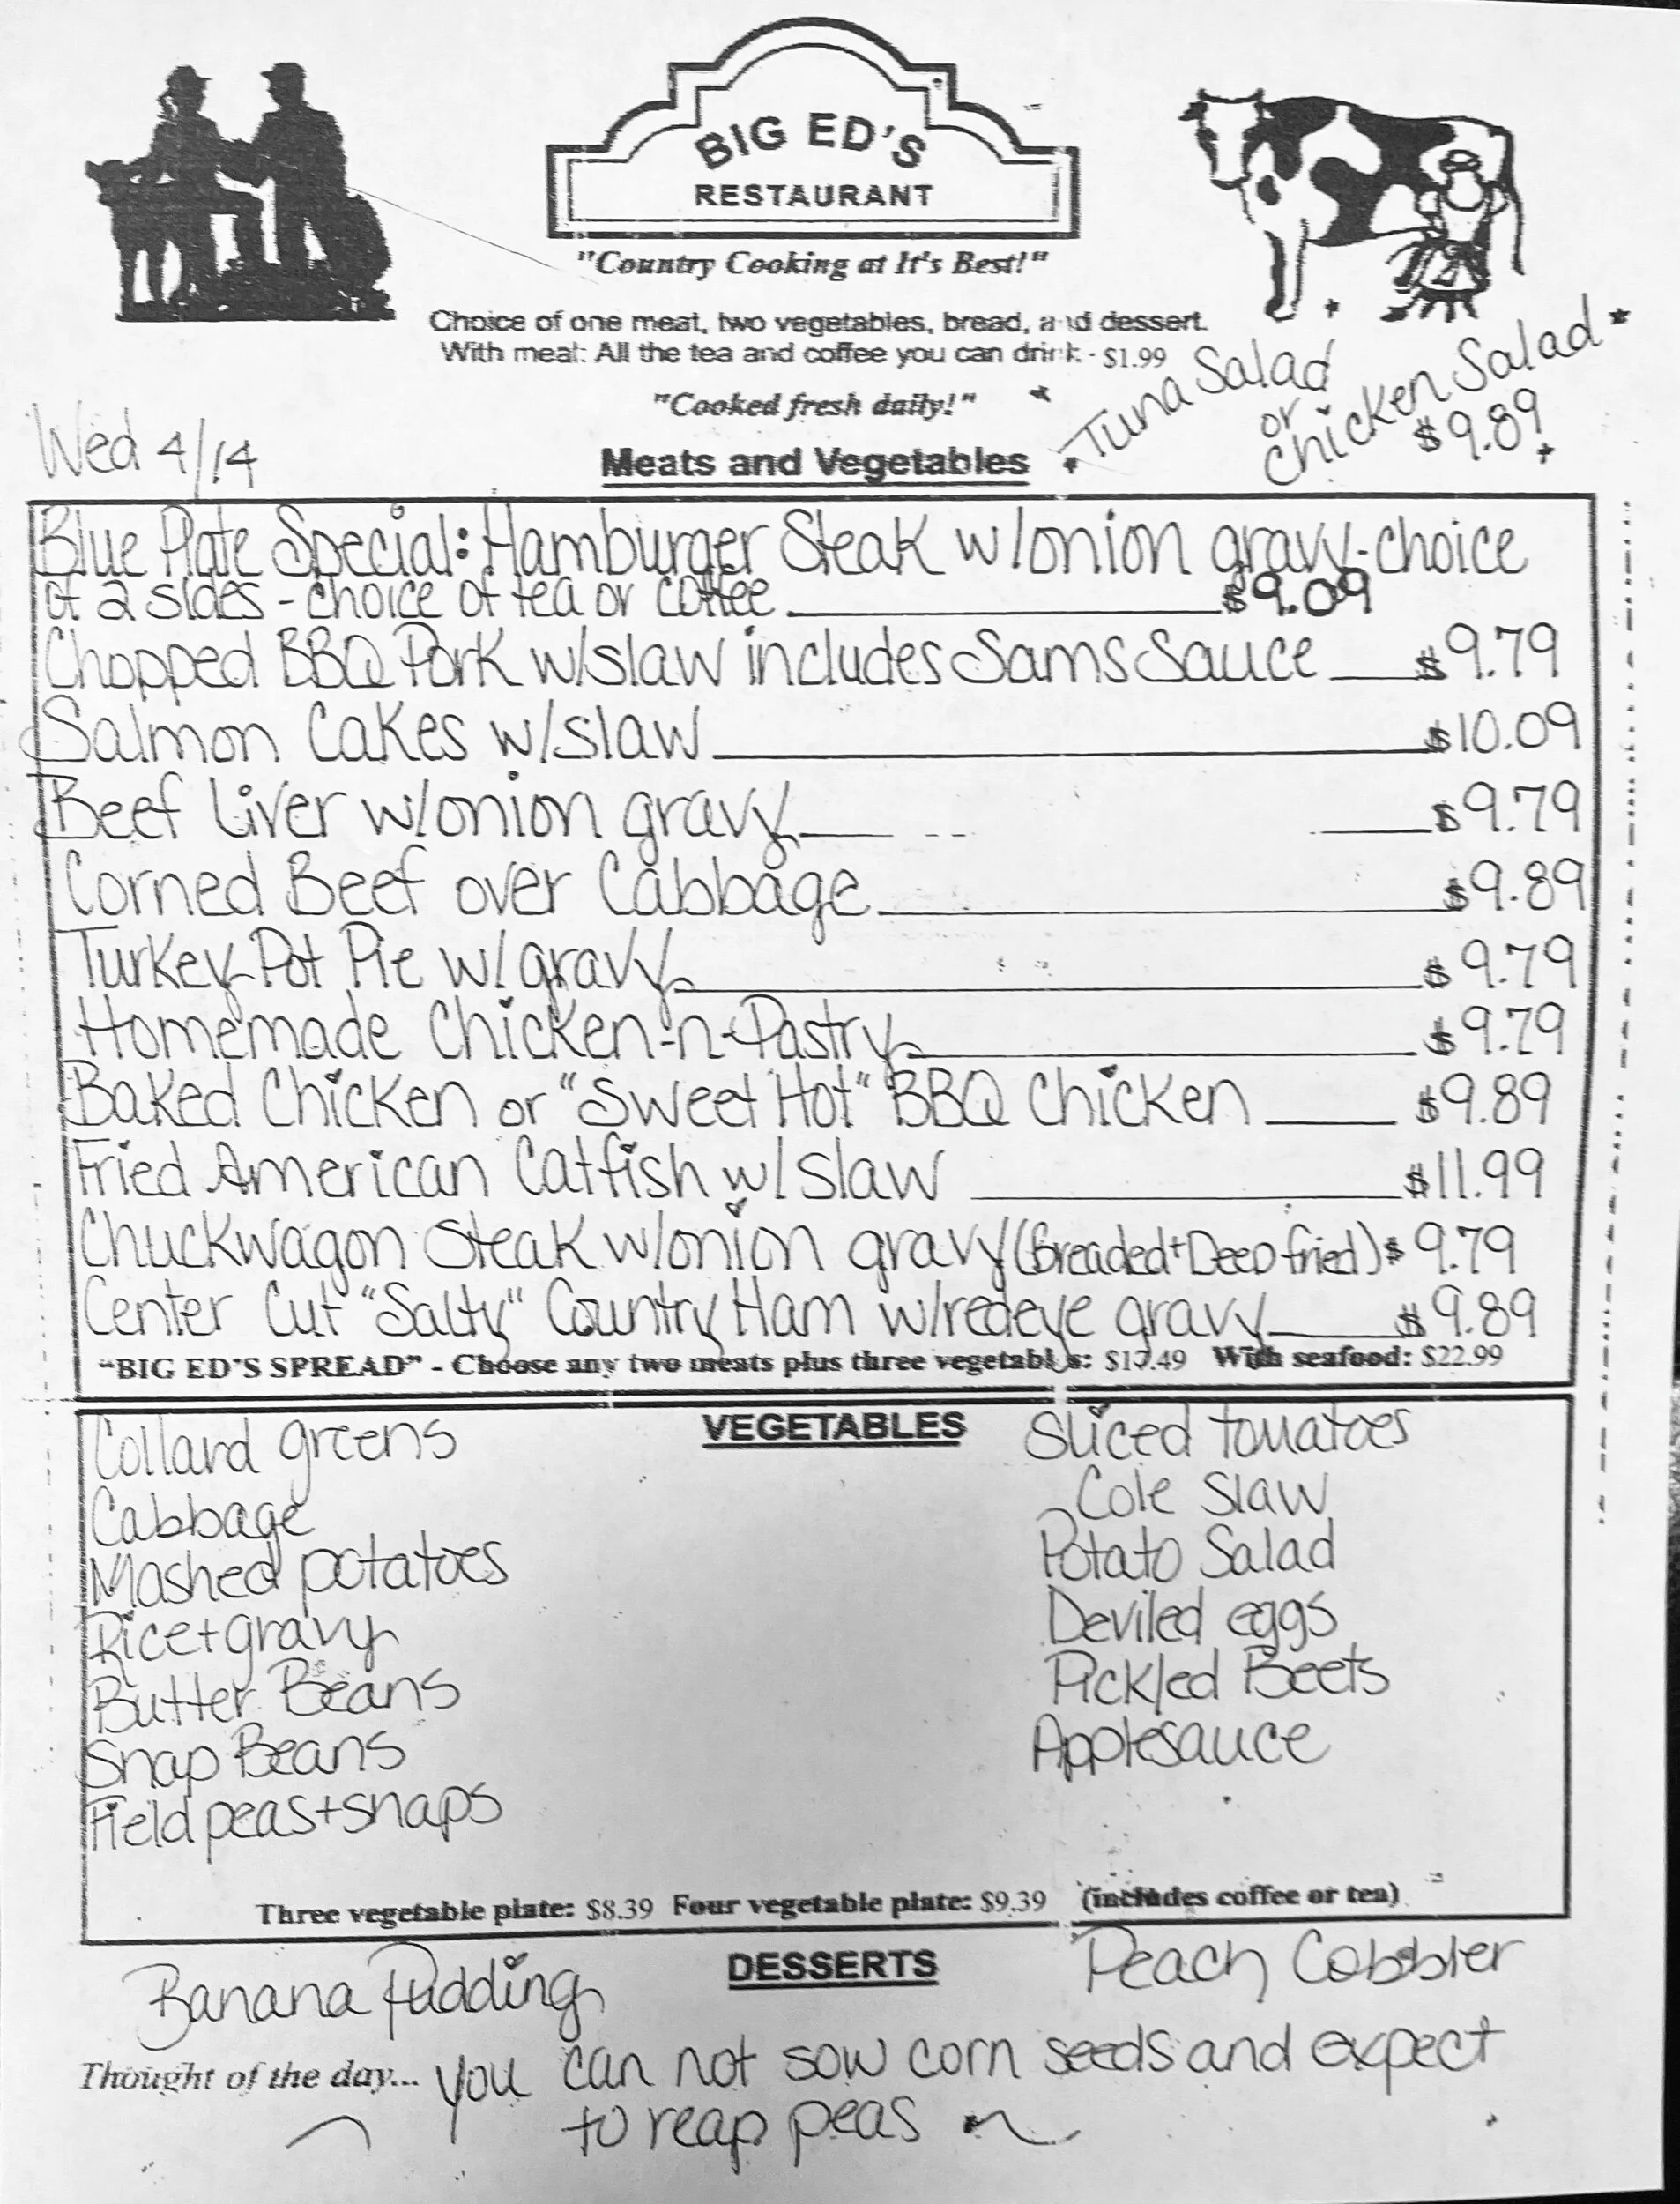 BIG ED'S
RESTAURANT
"Country Cooking at It's Best!"
Choice of one meat, two vegetables, bread, and dessert.
With meal: All the tea and coffee you can drink - $1.99
"Cooked fresh daily!"
Tuna Salad
or
Chicken Salad
$9.89
Wed 4/14
Meats and Vegetables
Blue Plate Special: Hamburger Steak w/onion gravy-choice
of 2 sides - choice of tea or coffee $9.09
Chopped BBQ Pork w/slaw includes Sams Sauce $9.79
Salmon Cakes w/slaw $10.09
Beef Liver w/onion gravy $9.79
Corned Beef over Cabbage $9.89
Turkey Pot Pie w/gravy $9.79
Homemade Chicken-n-Pastry $9.79
Baked Chicken or "Sweet Hot" BBQ Chicken $9.89
Fried American Catfish w/slaw $11.99
Chuckwagon Steak w/onion gravy (Breaded+Deep fried) $9.79
Center Cut "Salty" Country Ham w/redeye gravy $9.89
"BIG ED'S SPREAD" - Choose any two meats plus three vegetables: $17.49 With seafood: $22.99
VEGETABLES
Collard greens
Cabbage
Mashed potatoes
Rice+gravy
Butter Beans
Snap Beans
Field peas+snaps
Sliced tomatoes
Cole Slaw
Potato Salad
Deviled eggs
Pickled Beets
Applesauce
Three vegetable plate: $8.39 Four vegetable plate: $9.39 (includes coffee or tea)
DESSERTS
Banana Pudding
Peach Cobbler
Thought of the day... you can not sow corn seeds and expect
to reap peas